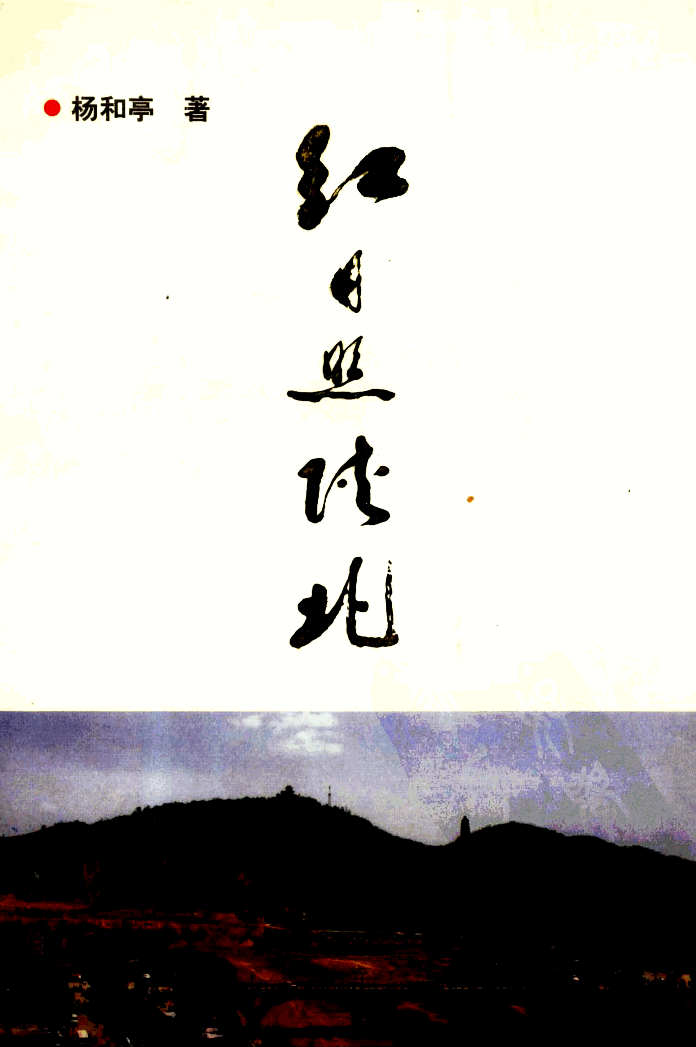 杨和亭 著
红月照陕北